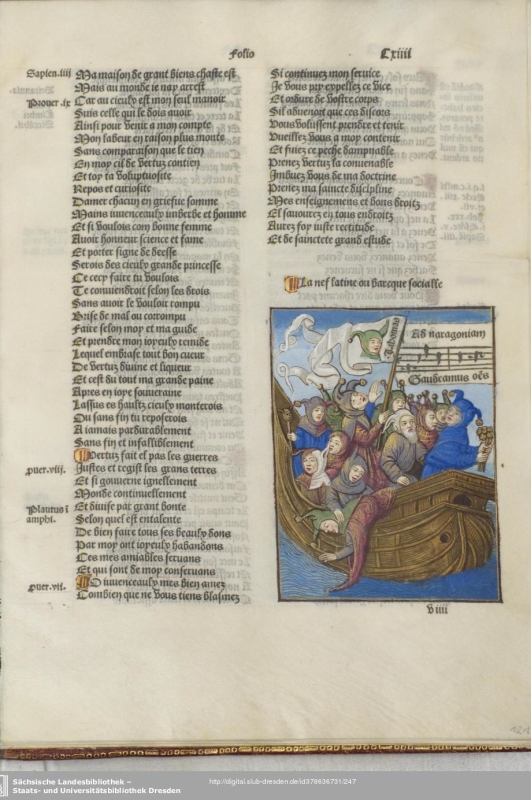 Folio
Cxiiii
Sapien. iiij
Ma maison de grant biens chaste est
Mais au monde ie nay arrest
Prouer. ix
Car au cieulx est mon seul manoir
Suis celle qui le dois auoir
Ainsi pour venir a mon compte
Mon labeur en raison plus monte
Sans comparaison que le tien
En moy cil de vertuz contien
Et toy ta voluptuosite
Repos et curiosite
Damer chacun en griefue somme
Mains iuuenceaulx imberbe et homme
Et si voulois com bonne femme
Auoir honneur science et fame
Et porter signe de deesse
Serois des cieulx grande princesse
Se cecy faire tu voulois
Te conuiendroit selon les drois
Sans auoir le vouloir rompu
Brise de mal ou corrompu
Faire selon moy et ma guide
Et prendre mon ioyeulx remide
Lequel embrase tout bon cueur
De vertuz diuine et liqueur
Et cest du tout ma grande paine
Apres en ioye souueraine
Lassus es haultz cieulx monterois
Ou sans fin tu reposerois
A iamais pardurablement
Sans fin et infalliblement
Vertuz fait el pas les guerres
puer. viij.
Justes et regist les grans terres
Et si gouuerne ignellement
Monde continuellement
Plautus i
amphi.
Et diuise par grant bonte
Selon quel est entalente
De bien faire tous ses beaulx dons
Par moy ont ioyeulx habandons
Ces mes amiables seruans
Et qui sont de moy conseruans
puer. vii.
O iuuenceaulx mes bien amez
Combien que ne vous tiens blasmez
Si continuez mon seruice
Je vous pry expellez ce vice
Et ordure de vostre corps
Sil aduenoit que ces discors
Vous voulissent prendre et tenir
Vueillez vous a moy contenir
Et fuiez ce peche dampnable
Prenez vertuz la conuenable
Imbuez vous de ma doctrine
Prenez ma saincte discipline
Mes enseignemens et bons droitz
Et sauourez en tous endroitz
Aurez foy iuste rectitude
Et de sainctete grand estude
La nef latine ou barcque socialle
Ad naragoniam
Gaudeamus oes
v iiii
Sächsische Landesbibliothek –
Staats- und Universitätsbibliothek Dresden
http://digital.slub-dresden.de/id378636731/247